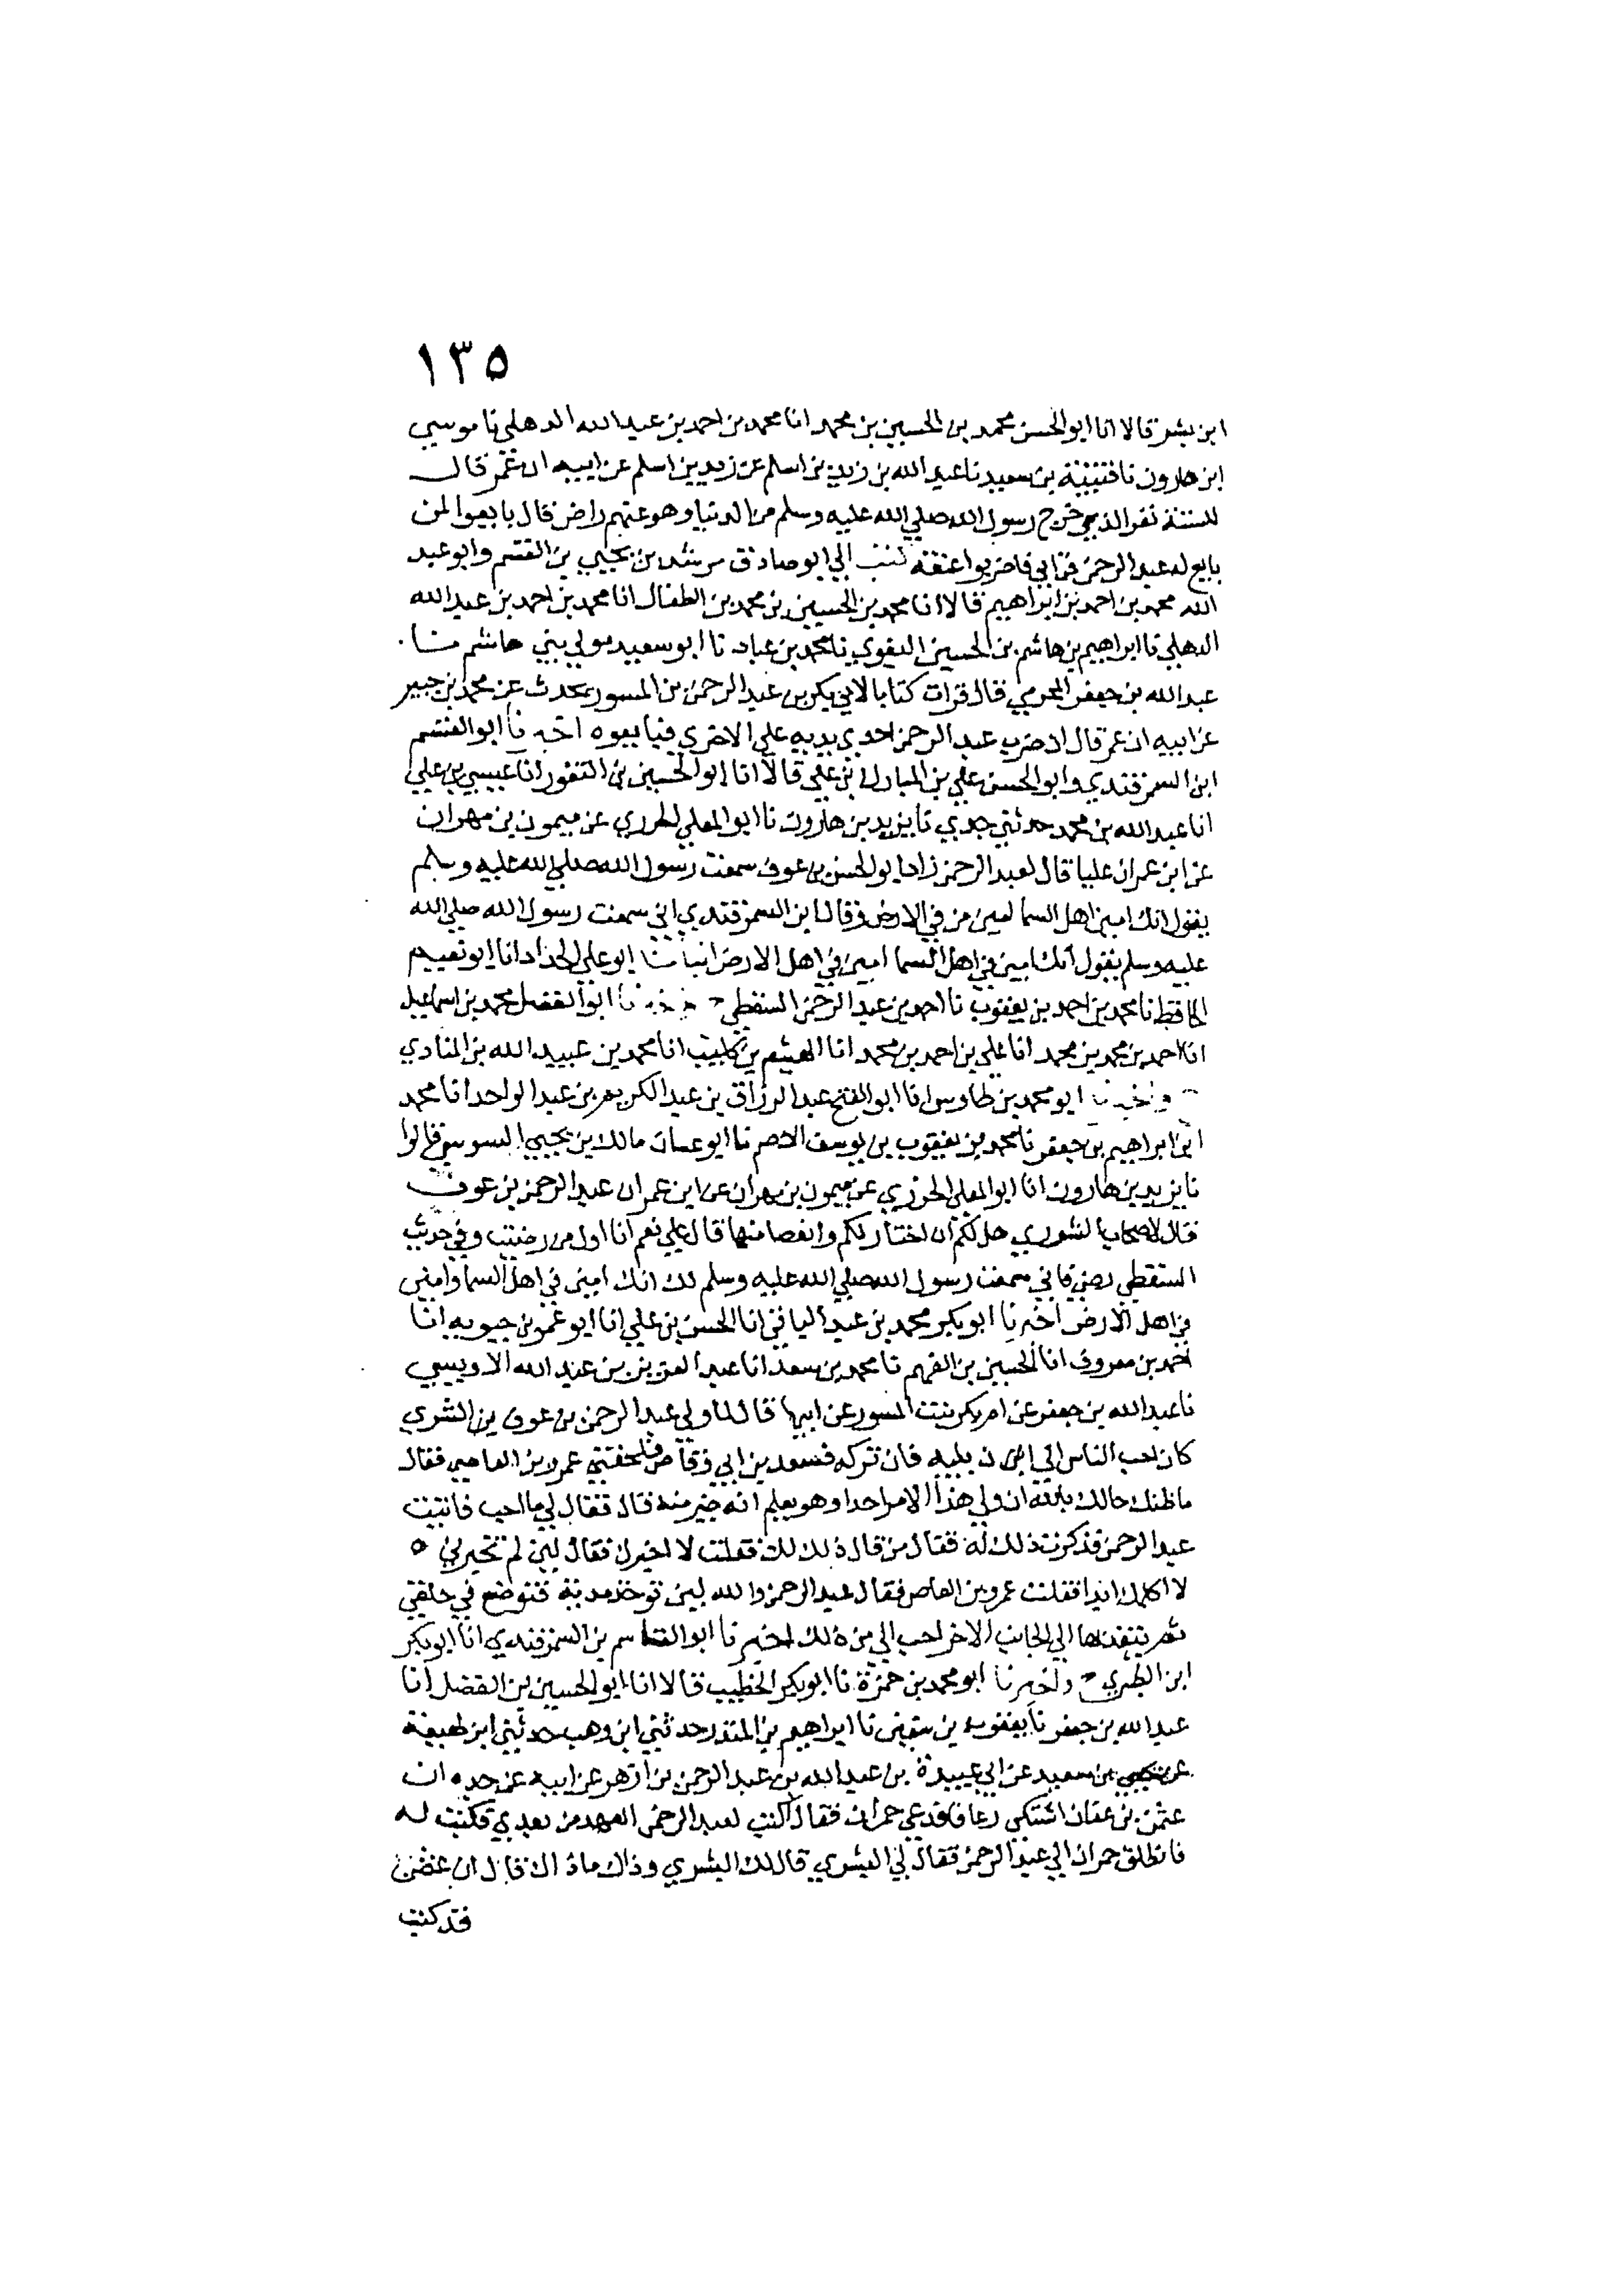 ١٣٥
ابن بشر قالا انا ابو الحسن محمد بن الحسين بن محمد انا محمد بن احمد بن عبد الله الدهلي نا موسي
ابن هارون نا قتيبة بن سعيد نا عبد الله بن زيد بن اسلم عن زيد بن اسلم عن ابيه ان عمر قال
للستة نفر الذي خرج رسول الله صلي الله عليه وسلم من الدنيا وهو عنهم راض قال بايعوا لمن
بايع له عبد الرحمن فمن ابي فاضربوا عنقه كتب الي ابو صادق مرشد بن يحيي بن القسم وابو عبد
الله محمد بن احمد بن ابراهيم قالا انا محمد بن الحسين بن محمد بن الطفال انا محمد بن احمد بن عبد الله
الدهلي نا ابراهيم بن هاشم بن الحسين البغوي نا محمد بن عباد نا ابو سعيد مولي بني هاشم نا
عبد الله بن جعفر المخرمي قال قرات كتابا لابي بكر بن عبد الرحمن بن المسور يحدث عن محمد بن جبير
عن ابيه ان عمر قال ان ضرب عبد الرحمن احدي يديه علي الاخري فبايعوه اخبرنا ابو القسم
ابن السمرقندي وابو الحسن علي بن المبارك بن علي قالا انا ابو الحسين بن النقور انا عيسي بن علي
انا عبد الله بن محمد حدثني جدي نا يزيد بن هارون نا ابو المعلي الجزري عن ميمون بن مهران
عن ابن عمر ان عليا قال لعبد الرحمن زاد ابو الحسن بن عوف سمعت رسول الله صلي الله عليه وسلم
يقول انك امين اهل السما امين من في الارض وقال ابن السمرقندي اني سمعت رسول الله صلي الله
عليه وسلم يقول انك امين في اهل السما امين في اهل الارض انبانا ابو علي الحداد انا ابو نعيم
الحافظ نا محمد بن احمد بن يعقوب نا احمد بن عبد الرحمن السقطي ح واخبرنا ابو الفضل محمد بن اسماعيل
انا احمد بن محمد بن محمد انا علي بن احمد بن محمد انا الهيثم بن كليب انا محمد بن عبيد الله بن المنادي
ح واخبرنا ابو محمد بن طاوس انا ابو الفتح عبد الرزاق بن عبد الكريم بن عبد الواحد انا محمد
ابن ابراهيم بن جعفر نا محمد بن يعقوب بن يوسف الاصم نا ابو غسان مالك بن يحيي السوسي قالوا
نا يزيد بن هارون انا ابو المعلي الجزري عن ميمون بن مهران عن ابن عمر ان عبد الرحمن بن عوف
قال لاصحاب الشوري هل لكم ان اختار لكم وانفصا منها قال علي نعم انا اول من رضيت وفي حديث
السقطي رضي فاني سمعت رسول الله صلي الله عليه وسلم لك انك امين في اهل السما وامين
في اهل الارض اخبرنا ابو بكر محمد بن عبد الباقي انا الحسن بن علي انا ابو عمر بن حيويه انا
احمد بن معروف انا الحسين بن الفهم نا محمد بن سعد انا عبد العزيز بن عبد الله الاويسي
نا عبد الله بن جعفر عن ام بكر بنت المسور عن ابيها قال لما ولي عبد الرحمن بن عوف بن الشوري
كان احب الناس الي ان يليه فان تركه فسعد بن ابي وقاص فلحقني عمرو بن العاص فقال
ما ظنك خالك بالله ان ولي هذا الامر احدا وهو يعلم انه خير منه قال فقال لي ما احب فاتيت
عبد الرحمن فذكرت ذلك له فقال من قال ذلك لك فقلت لا اخبرك فقال لين لم تخبرني ٥
لا اكلمك ابدا فقلت عمرو بن العاص فقال عبد الرحمن والله لين توخذ مدية فتوضع في حلقي
ثم ينفذ بها الي الجانب الاخر احب الي من ذلك اخبرنا ابو القاسم بن السمرقندي انا ابو بكر
ابن الطبري ح واخبرنا ابو محمد بن حمزة نا ابو بكر الخطيب قالا انا ابو الحسين بن الفضل انا
عبد الله بن جعفر نا يعقوب بن سفين نا ابراهيم بن المنذر حدثني ابن وهب حدثني ابن لهيعة
عن يحيي بن سعيد عن ابي عبيدة بن عبد الله بن عبد الرحمن بن ازهر عن ابيه عن جده ان
عثمن بن عفان اشتكي رعافا فدعي حمران فقال اكتب لعبد الرحمن العهد من بعدي فكتب له
فانطلق حمران الي عبد الرحمن فقال لي البشري قال لك البشري وذاك ماذا قال ان عثمن
قد كتب